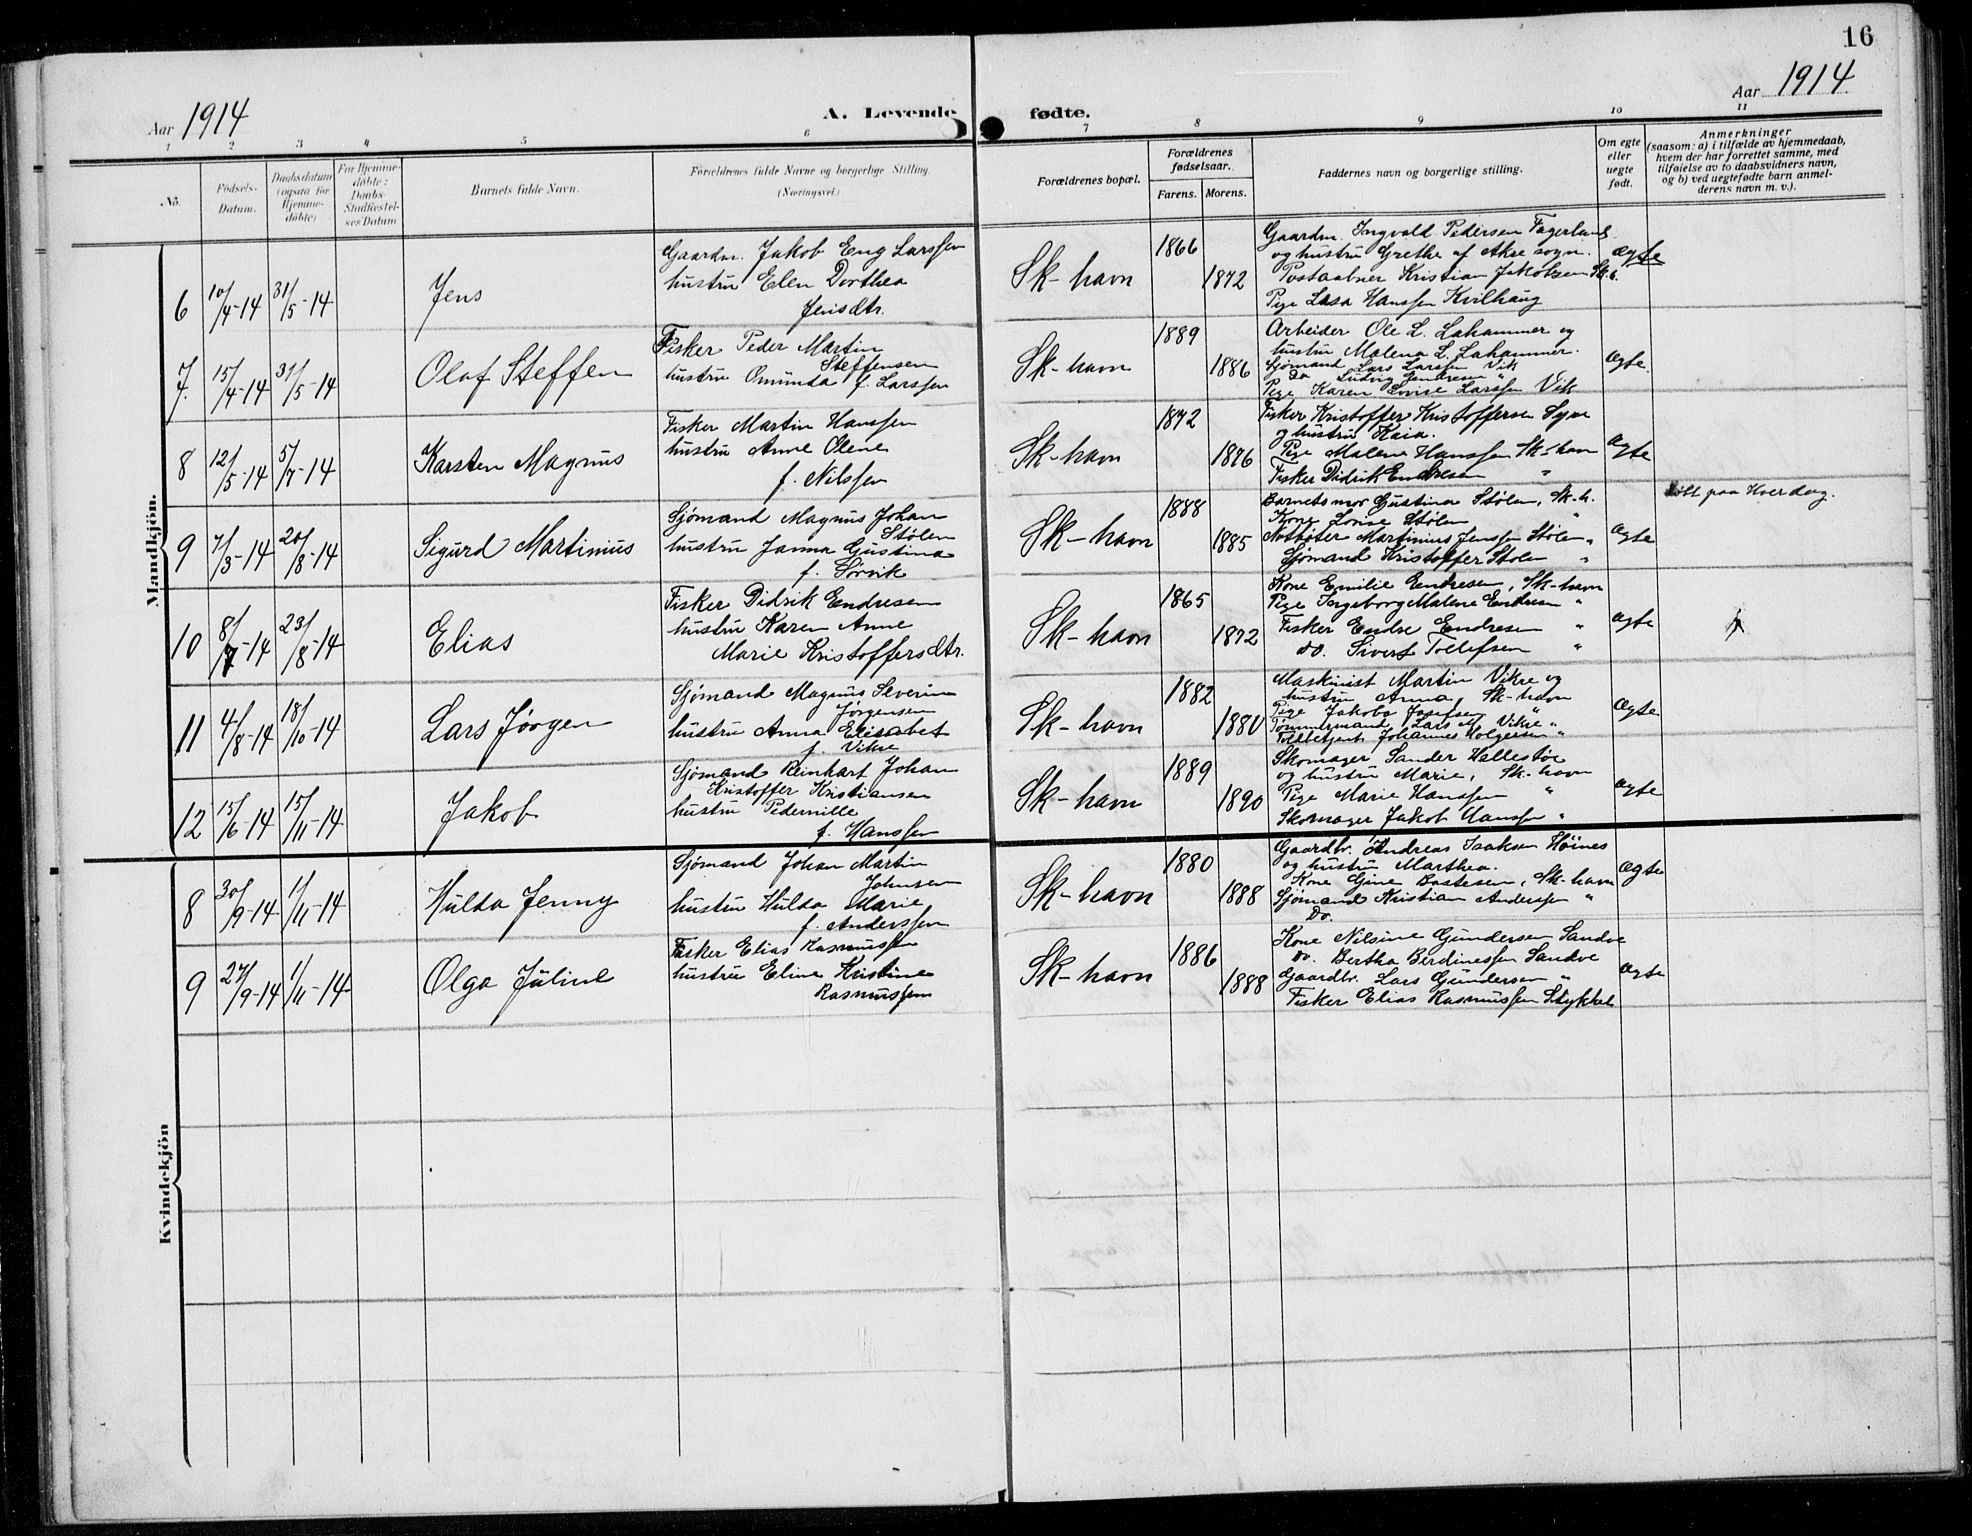 16
Aar 1914
A. Levende fødte.
Aar 1914
1 2 3 4 5 6 7 8 9 10 11
No.
Fødsels-Datum.
Daabsdatum (ogsaa for Hjemme-døbte)
For Hjemme-døbte: Daabs Stadfestel-ses Datum
Barnets fulde Navn.
Forældrenes fulde Navne og borgerlige Stilling
(Næringsvei)
Forældrenes bopæl.
Forældrenes fødselsaar.
Farens. Morens.
Faddernes navn og borgerlige stilling.
Om egte eller uegte født.
Anmerkninger
(saasom: a) i tilfælde av hjemmedaab,
hvem der har forrettet samme, med
tilføielse av to daabsvidners navn,
og b) ved uegtefødte barn anmel-
derens navn m. v.).
Mandkjön.
6 10/4-14 31/5-14 Jens
Gaardm. Jakob Eng Larssen
hustru Elen Dorthea
Jensdtr.
Sk-havn 1866 1872
Gaardm. Ingvald Pedersen Fagerland
og hustru Grethe af Akre sogn.
Postaabner Kristian Jakobsen Sk.h.
Pige Lasa Hanssen Kvilhaug
ægte
7. 15/4-14 31/5-14 Olaf Steffen
Fisker Peder Martin
Steffensen
hustru Omunda f. Larssen
Sk-havn 1889 1886
Arbeider Ole L. Lahammer og
hustru Malena L. Lahammer.
Sjømand Lars Larssen Vik
Do Ludvig Endresen "
Pige Karen Lovise Larssen Vik
ægte
8 12/5-14 5/7-14 Karsten Magnus
Fisker Martin Hanssen
hustru Anne Olene
f. Nilssen
Sk-havn 1872 1876
Fisker Kristoffer Kristoffersen Syre
og hustru Kaia.
Pige Malene Hanssen Sk-havn
Fisker Didrik Endresen "
ægte
9 7/3-14 20/8-14 Sigurd Martinius
Sjømand Magnus Johan
Stølen
hustru Janna Gustina
f. Sørvik
Sk-havn 1888 1885
Barnets mor Gustina Stølen, Sk-h.
Kone Lovise Stølen "
Notbøter Martinius Jenssen Stølen "
Sjømand Kristoffer Stolen "
ægte
døbt paa Hverdag.
10 8/7-14 23/8-14 Elias
Fisker Didrik Endresen
hustru Karen Anne
Marie Kristoffersdtr.
Sk-havn 1865 1872
Kone Emilie Endresen, Sk-havn
Pige Ingeborg Malene Endresen "
Fisker Endre Endresen "
do. Sivert Tollefsen "
ægte
11 4/8-14 18/10-14 Lars Jørgen
Sjømand Magnus Severin
Jørgensen
hustru Anna Elisabet
f. Vikre
Sk-havn 1882 1880
Maskinist Martin Vikre og
hustru Anna, Sk-havn
Pige Jakoba Josefsen "
Tømmermand Lars M. Vikre "
Toldbetjent Johannes Holgersen "
ægte
12 15/6-14 15/11-14 Jakob
Sjømand Reinhart Johan
Kristoffer Kristiansen
hustru Pedernille
f. Hanssen
Sk-havn 1889 1890
Skomager Sander Hallestøe
og hustru Marie, Sk-havn
Pige Marie Hanssen "
Skomager Jakob Hanssen "
ægte
Kvindekjön
8 30/9-14 1/11-14 Hulda Jenny
Sjømand Johan Martin
Johnsen
hustru Hulda Marie
f. Anderssen
Sk-havn 1880 1888
Gaardbr. Andreas Isaksen Høines
og hustru Marthea.
Kone Gine Bastesen, Sk-havn
Sjømand Kristian Anderssen "
Do.
ægte
9 27/9-14 1/11-14 Olga Juline
Fisker Elias Rasmussen
hustru Eline Kristine
Rasmussen
Sk-havn 1886 1888
Kone Nilsine Gundersen Sandve
do. Bertha Berdinessen Sandve
Gaardbr. Lars Gundersen "
Fisker Elias Rasmussen Stykkel
ægte